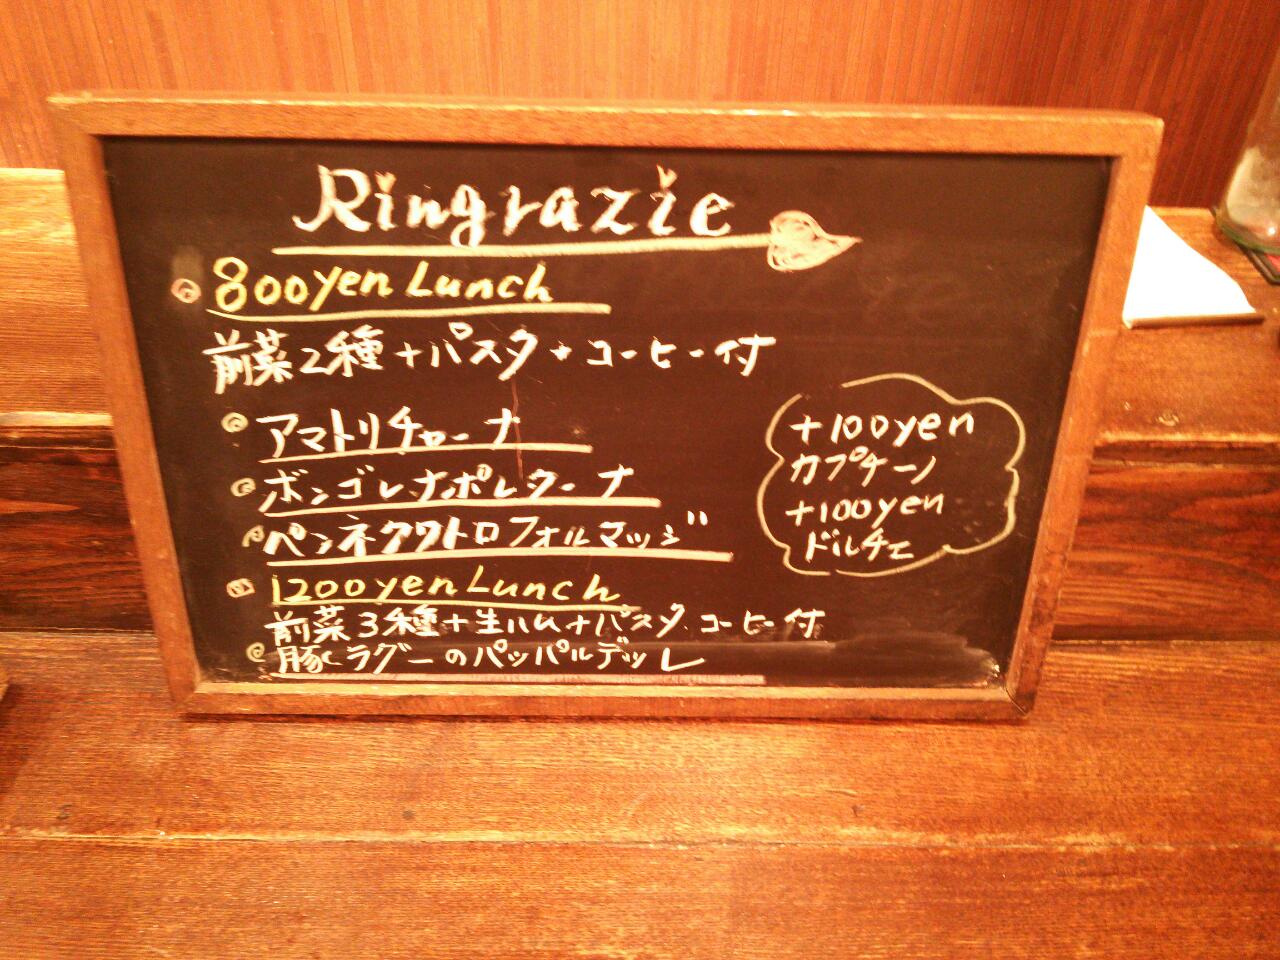 Ringrazie
800yen Lunch
前菜2種+パスタ+コーヒー付
アマトリチャーナ
ボンゴレナポレターナ
ペンネクワトロフォルマッジ
1200yen Lunch
前菜3種+生ハム+パスタ、コーヒー付
豚ラグーのパッパルデッレ
+100yen
カプチーノ
+100yen
ドルチェ